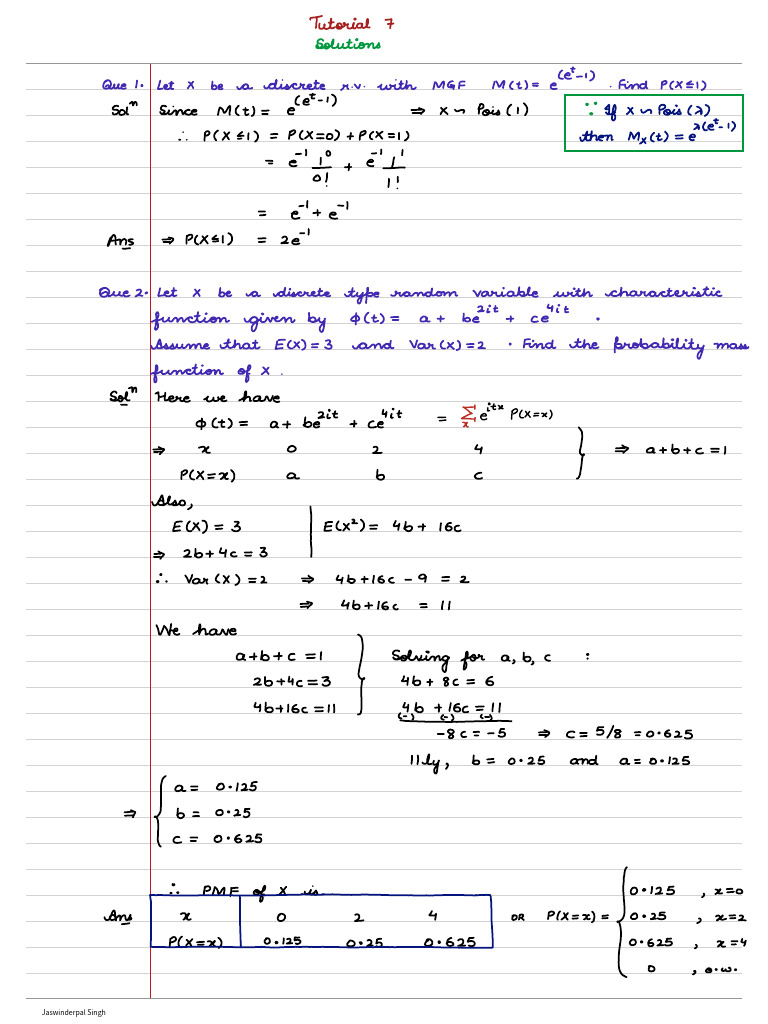 Tutorial 7
Solutions
Que 1. Let X be a discrete r.v. with MGF M(t) = e^(e^t-1) . Find P(X≤1)
Solⁿ Since M(t) = e^(e^t-1) ⇒ X ~ Pois(1)
∵ If X ~ Pois(λ)
then M_X(t) = e^λ(e^t-1)
∴ P(X≤1) = P(X=0) + P(X=1)
= e^-1 1^0 / 0! + e^-1 1^1 / 1!
= e^-1 + e^-1
Ans ⇒ P(X≤1) = 2e^-1
Que 2. Let X be a discrete type random variable with characteristic
function given by Φ(t) = a + be^2it + ce^4it .
Assume that E(X)=3 and Var(X)=2 . Find the probability mass
function of X .
Solⁿ Here we have
Φ(t) = a + be^2it + ce^4it = Σ_x e^itx P(X=x)
⇒ x 0 2 4 } ⇒ a+b+c=1
P(X=x) a b c
Also,
E(X) = 3 | E(X²) = 4b + 16c
⇒ 2b+4c = 3
∴ Var(X) = 2 ⇒ 4b+16c - 9 = 2
⇒ 4b+16c = 11
We have
a+b+c = 1 } Solving for a, b, c :
2b+4c = 3 4b + 8c = 6
4b+16c = 11 4b + 16c = 11
(-) (-) (-)
-8c = -5 ⇒ c = 5/8 = 0.625
llly, b = 0.25 and a = 0.125
⇒ { a = 0.125
b = 0.25
c = 0.625
∴ PMF of X is
Ans x 0 2 4
P(X=x) 0.125 0.25 0.625
OR P(X=x) = { 0.125 , x=0
0.25 , x=2
0.625 , x=4
0 , o.w.
Jaswinderpal Singh